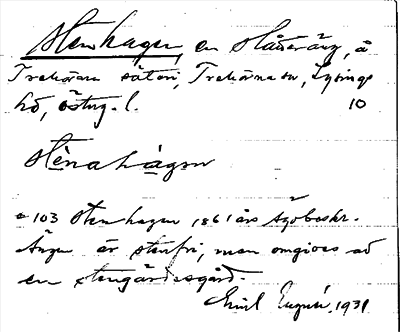 Stenhagen, en slåtteräng, å
Trehörna säteri, Trehörna sn, Lysings
hd, Östug. l. 10
stènahágen
103 Stenhagen 1861 års ägobeskr.
Ängen är stenfri, men omgives av
en stengärdesgård.
Emil 1931